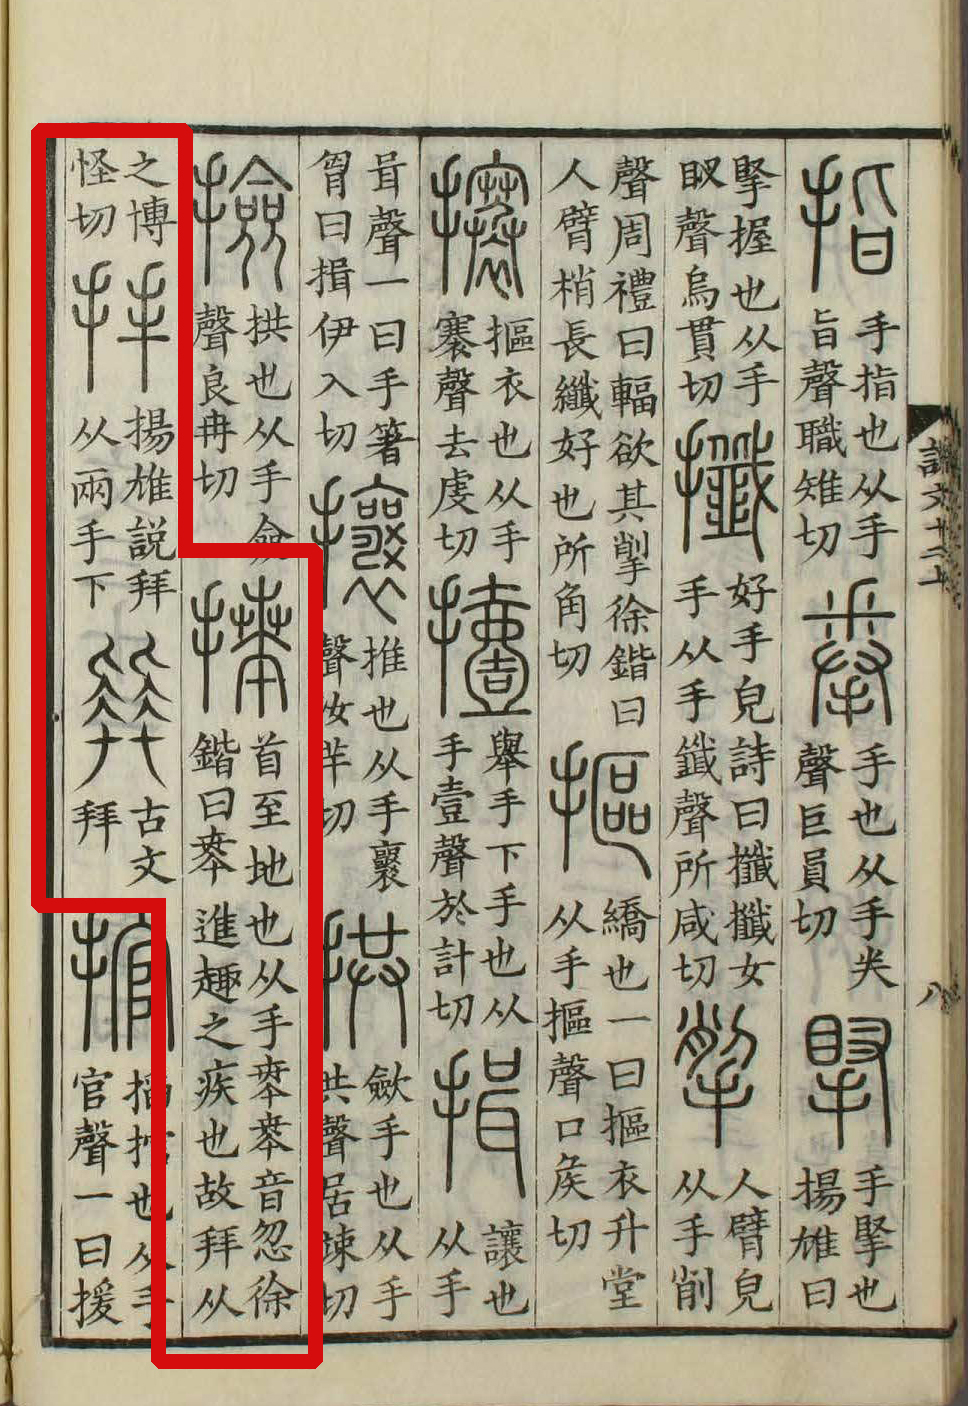 說文十二上
八
指
手指也从手
旨聲職雉切
拳
手也从手𠔉
聲巨員切
掔
手掔也
揚雄曰
掔握也从手
臤聲烏貫切
攕
好手皃詩曰攕攕女
手从手韱聲所咸切
揱
人臂皃
从手削
聲周禮曰輻欲其揱徐鍇曰
人臂梢長纖好也所角切
摳
繑也一曰摳衣升堂
从手摳聲口矦切
攐
摳衣也从手
褰聲去虔切
撎
舉手下手也从
手壹聲於計切
揖
讓也
从手
咠聲一曰手箸
胷曰揖伊入切
攘
推也从手襄
聲汝羊切
拱
斂手也从手
共聲居竦切
撿
拱也从手僉
聲良冉切
𢷎
首至地也从手𠦪𠦪音忽徐
鍇曰𠦪進趣之疾也故拜从
之博
怪切
拜
揚雄説拜
从兩手下
古文
拜
捾
搯捾也从手
官聲一曰援